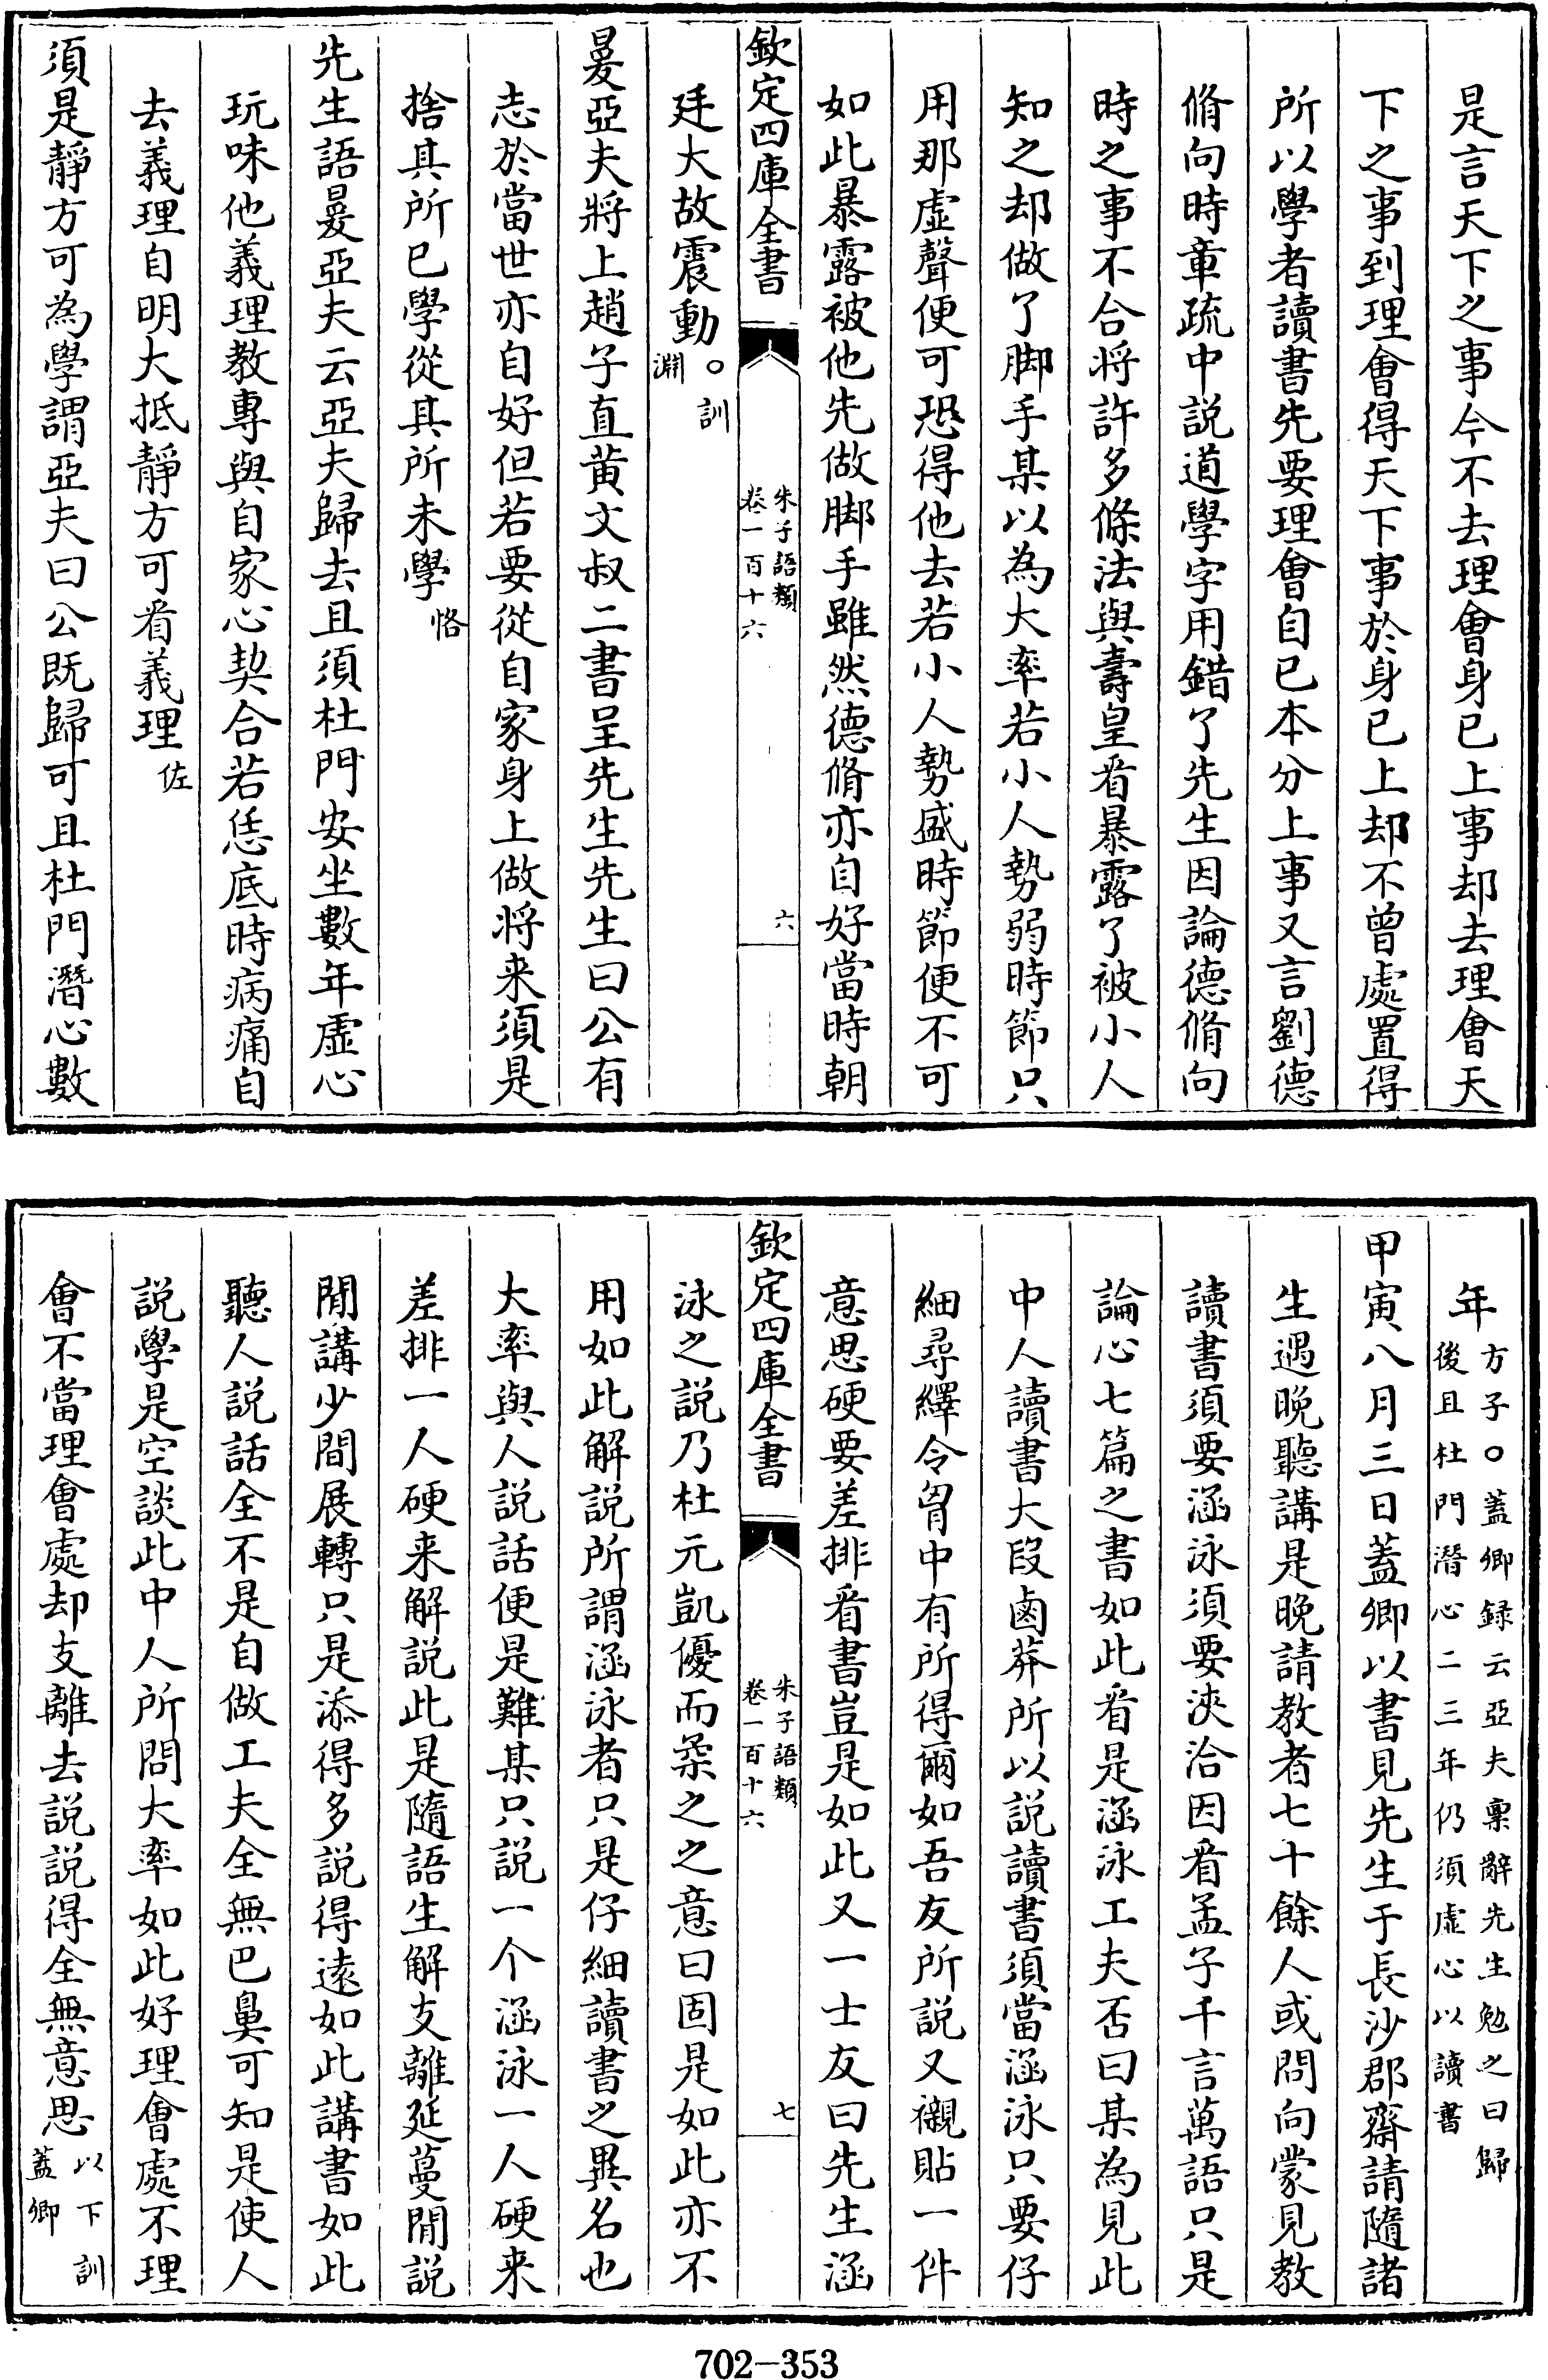 是言天下之事今不去理會身已上事却去理會天
下之事到理會得天下事於身已上却不曾處置得
所以學者讀書先要理會自已本分上事又言劉德
脩向時章疏中説道學字用錯了先生因論德脩向
時之事不合將許多條法與壽皇看暴露了被小人
知之却做了脚手某以為大率若小人勢弱時節只
用那虚聲便可恐得他去若小人勢盛時節便不可
如此暴露被他先做脚手雖然德脩亦自好當時朝
欽定四庫全書
朱子語類
卷一百十六
六
廷大故震動○訓
淵
㬊亞夫將上趙子直黄文叔二書呈先生先生曰公有
志於當世亦自好但若要從自家身上做將来須是
捨其所已學從其所未學恪
先生語㬊亞夫云亞夫歸去且須杜門安坐數年虚心
玩味他義理教專與自家心契合若恁底時病痛自
去義理自明大抵靜方可看義理佐
須是靜方可為學謂亞夫曰公既歸可且杜門潛心數
年方子○蓋卿録云亞夫稟辭先生勉之曰歸
後且杜門潛心二三年仍須虚心以讀書
甲寅八月三日蓋卿以書見先生于長沙郡齋請隨諸
生遇晩聽講是晩請教者七十餘人或問向蒙見教
讀書須要涵泳須要浹洽因看孟子千言萬語只是
論心七篇之書如此看是涵泳工夫否曰某為見此
中人讀書大段鹵莽所以説讀書須當涵泳只要仔
細尋繹令胷中有所得爾如吾友所説又襯貼一件
意思硬要差排看書豈是如此又一士友曰先生涵
欽定四庫全書
朱子語類
卷一百十六
七
泳之説乃杜元凱優而柔之之意曰固是如此亦不
用如此解説所謂涵泳者只是仔細讀書之異名也
大率與人説話便是難某只説一个涵泳一人硬来
差排一人硬来解説此是隨語生解支離延蔓閒説
閒講少間展轉只是添得多説得遠如此講書如此
聽人説話全不是自做工夫全無巴鼻可知是使人
説學是空談此中人所問大率如此好理會處不理
會不當理會處却支離去説説得全無意思以下訓
蓋卿
702-353